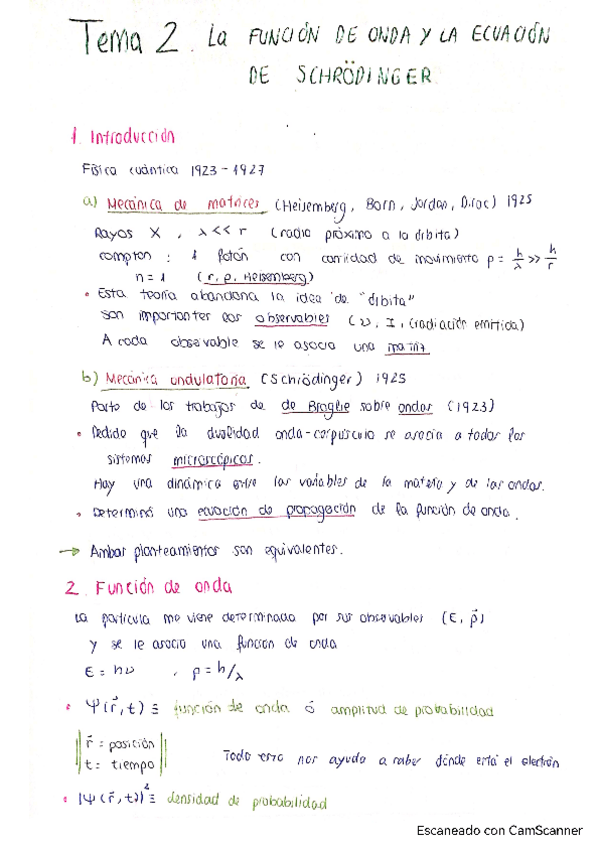 Tema 2. LA FUNCIÓN DE ONDA Y LA ECUACIÓN
DE SCHRÖDINGER
1. Introducción
Física cuántica 1923 - 1927
a) Mecánica de matrices (Heisemberg, Born, Jordan, Dirac) 1925
Rayos X , λ << r (radio próximo a la órbita)
compton : 1 fotón con cantidad de movimiento p = h/λ >> h/r
n = 1 (r, p, Heisemberg)
• Esta teoría abandona la idea de "órbita"
son importantes los observables (ν, I, (radiación emitida)
A cada observable se le asocia una matriz
b) Mecánica ondulatoria (Schrödinger) 1925
Parte de los trabajos de de Broglie sobre ondas (1923)
• Dedido que la dualidad onda-corpúsculo se asocia a todos los
sistemas microscópicos.
Hay una dinámica entre las variables de la materia y de las ondas.
• Determinó una ecuación de propagación de la función de onda.
→ Ambos planteamientos son equivalentes.
2. Función de onda
La partícula me viene determinada por sus observables (E, p⃗)
y se le asocia una función de onda
E = hν , p = h/λ
• Ψ(r⃗, t) ≡ función de onda ó amplitud de probabilidad
r⃗ = posición
t = tiempo
Todo esto nos ayuda a saber dónde está el electrón
• |Ψ(r⃗, t)|² ≡ densidad de probabilidad
Escaneado con CamScanner